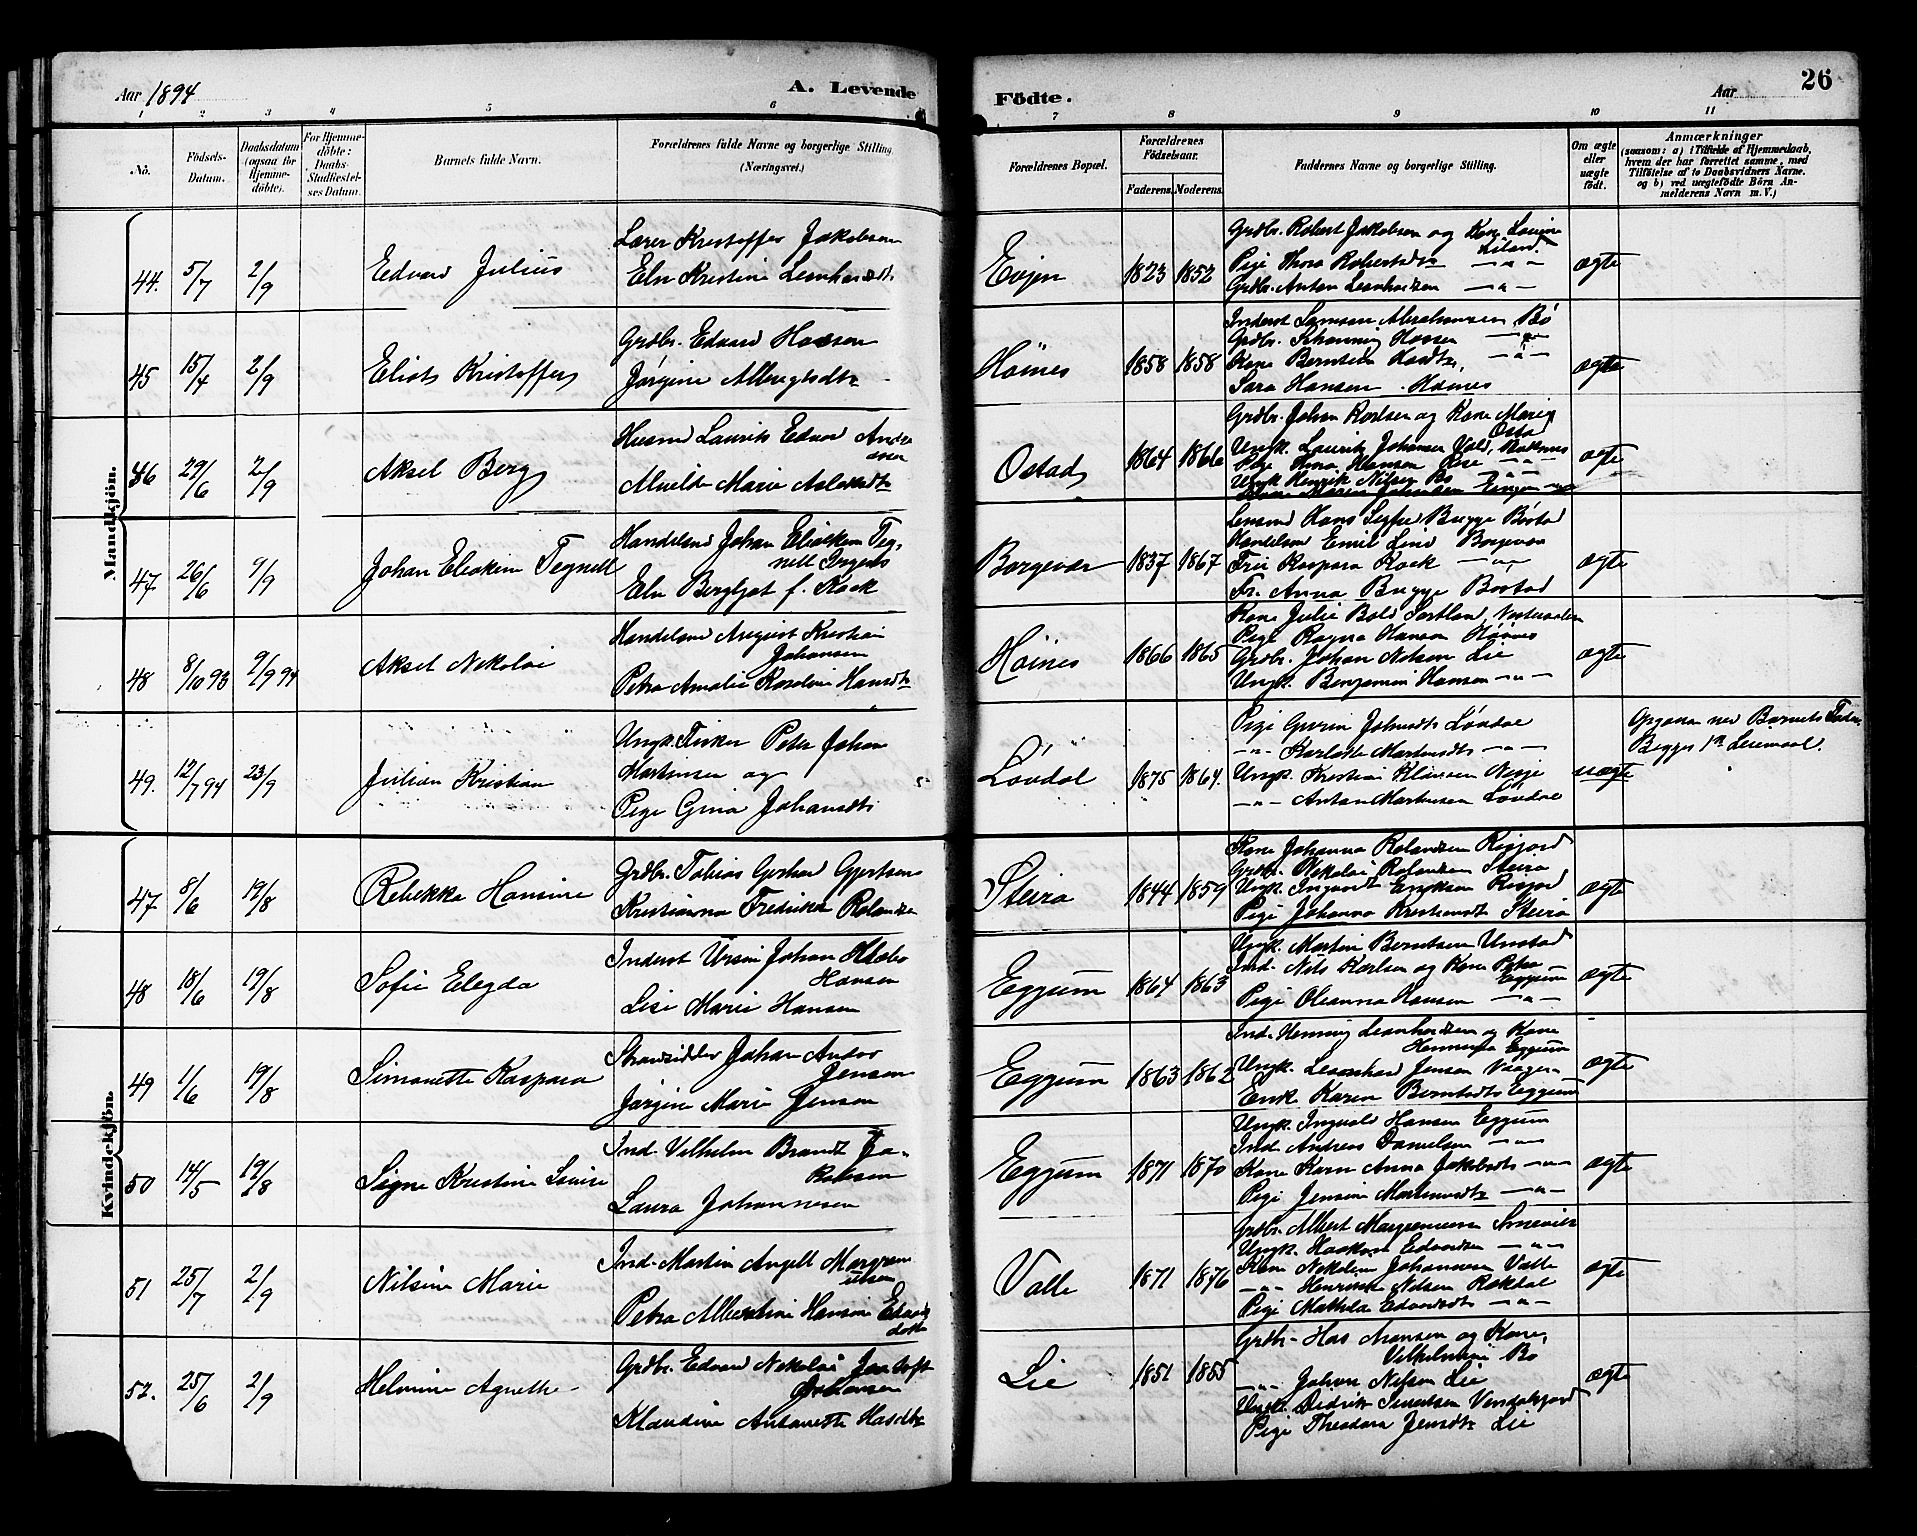 Aar 1894
A. Levende
Födte.
Aar
26
1 2 3 4 5 6 7 8 9 10 11
No.
Födsels-Datum.
Daabsdatum (ogsaa for Hjemme-döbte).
For Hjemme-döbte: Daabs-Stadfæstel-ses Datum.
Barnets fulde Navn.
Forældrenes fulde Navne og borgerlige Stilling (Næringsvei.)
Forældrenes Bopæl.
Forældrenes Födselsaar.
Faderens. Moderens.
Faddernes Navne og borgerlige Stilling.
Om ægte eller uægte födt.
Anmærkninger
(saasom: a) i Tilfælde af Hjemmedaab, hvem der har forrettet samme, med Tilföielse af to Daabsvidners Navne. og b) ved uægtefödte Börn An-melderens Navn m.V.)
Mandkjön.
44. 5/7 2/9 Edvard Julius
Lærer Kristoffer Jakobsen
Eln Kristine Leonhardsdt.
Evjen 1823 1852
Grdbr. Robert Jakobsen og Kone Lovine
Liland.
Pige Thora Robertsdt. —"—
Grdbr. Anton Leonhardsen —"—
ægte
45 15/4 2/9 Eliots Kristoffer
Grdbr. Edvard Hansen
Jørgine Albregtsdtr
Höines 1858 1858
Inderst Samson Abrahamsen, Bö
Grdbr. Schønning Hansen —"—
Kone Berntine —"—
Sara Hansen. Høines
ægte
46 29/6 2/9 Aksel Berg
Husmd Laurits Edvard Andre
asen
Marie
Ostad 1864 1866
Grdbr. Johan Karlsen og Kone Marie
Ostad
Ungk. Laurits Johansen
Pige Thora Hansen
Ungk Henrik Nilsen Bö
ægte
47 26/6 9/9 Johan Eliakim Tegnell
Handelsmd Johan Eliakim Teg-
nell Ingebr
Eln Bergljot f. Kock
Borgevær 1837 1867
Lensmd Hans Bugge Bøstad
Handelsmd Emil Lind Borgevær
Frk Kaspara Kock —"—
Fr. Anna Bugge Bostad
ægte
48 8/10 93 9/9 94 Aksel Nikolai
Handelsmd August Kristian
Johansen
Petra Amalie Roselvie Hansdtr
Höines 1866 1865
Kone Julie Bold Sortland, Vesteraalen
Pige Ragna Hansen Höines
Grdbr. Johan Nilsen Lie
Ungk. Benjamin Hansen —"—
ægte
49. 12/7 94 23/9 Julian Kristian
Ungk. Fisker Peter Johan
Martinsen og
Pige Gina Johansdtr
Lövdal 1875 1864.
Pige Gurin Johansdt. Lövdal
—"— Karlotte Martinsdt. —"—
Ungk. Kristian Nesje
—"— Anton Martinsen Lövdal
uægte
Opgaven ved Barnets Fader.
Begges 1ste Leiermaal.
Kvindekjön.
47 8/6 19/8 Rebekka Hansine
Grdbr. Tobias Gerhard Gjertsen
Kristianna Fredrikke Rolandsen
Steira 1844 1859
Kone Johanna Rolandsen
Grdbr. Nikolai Rolandsen Steira
Ungk. Ingvardt Eriksen
Pige Johanna Kristiansdt. Steira
ægte
48 18/6 19/8 Sofie Elegda
Inderst Ursin Johan
Hansen
Lise Marie Hansen
Eggum 1864 1863
Ungk. Martin Berntsen Unstad
Ind. Nils Karlsen og Kone Petra
Eggum
Pige Oleanna Hansen —"—
ægte
49 1/6 19/8 Simonette Kaspara
Strandsidder Johan Andor
Jensen
Jørgine Marie Jensen
Eggum 1863 1862
Ind. Henning Leonhardsen og Kone
Eggum
Ungk. Leonhard Jensen
Enk. Karen Berntsdt. Eggum
ægte
50 14/5 19/8 Signe Kristine Lovise
Ind. Vilhelm Brandt Ja-
kobsen
Laura Johannesen
Eggum 1871 1870
Ungk. Ingvald Hansen Eggum
Ind. Andreas Danielsen —"—
Kone Karn Anna Jakobsdt. —"—
Pige Jensine Martinsdtr —"—
ægte
51 25/7 2/9 Nilsine Marie
Ind. Martin Angell
Petra Albertine Hansine Edvards
datter
Valle 1871 1876
Grdbr. Albert
Ungk. Haakon Edvardsen —"—
Kone Nikoline Johannesen Valle
—"— Henrikke Nilsen
Pige Mathilde Edvardsdt. —"—
ægte
52. 25/6 2/9 Helmine Agnethe
Grdbr. Edvard Nikolai
Johansen
Klaudine Antonette
Lie 1851 1855
Grdbr. Hans Hansen og Kone
Vilhelmine Bö
—"— Johan Nilsen Lie
Ungk. Didrik
Pige Theodora Jensdtr Lie
ægte